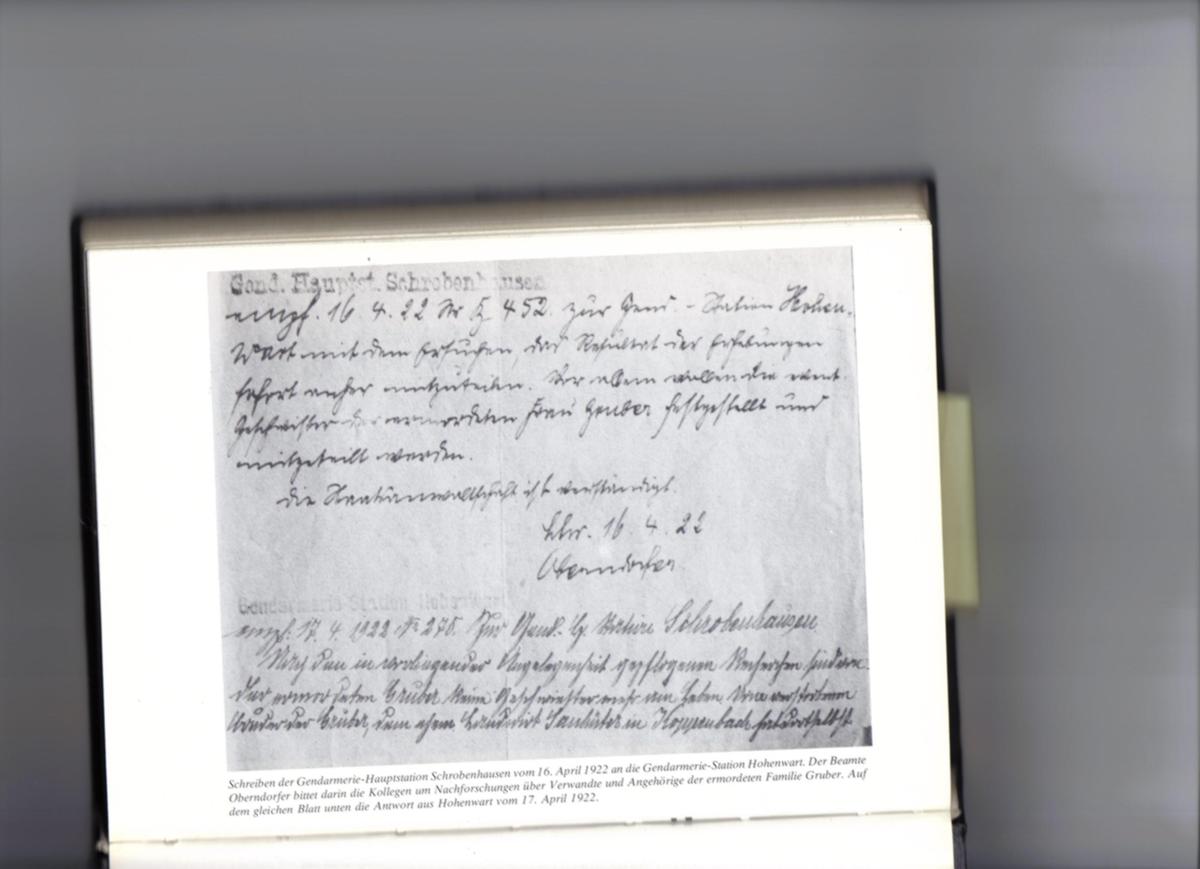 Gend. Hauptst. Schrobenhausen
empf. 16. 4. 22 Nr 452. zur Gend. - Station Hohen-
wart mit dem Ersuchen, das Resultat der Erhebungen
sofort anher mitzuteilen. Vor allem wollen die event.
Geschwister der ermordeten Frau Gruber festgestellt und
mitgeteilt werden.
Die Staatsanwaltschaft ist verständigt.
16. 4. 22
Oberndorfer
Gendarmerie-Station Hohenwart
empf. 17. 4. 1922 № 276. Zur Gend. Station Schrobenhausen
Nach den in vorliegender Angelegenheit gepflogenen Recherchen sind von
der ermordeten Gruber keine Geschwister mehr am Leben. Vom verstorbenen
Bruder der Gruber, dem ehem. Landwirt Sanhüter in Koppenbach selbst
Schreiben der Gendarmerie-Hauptstation Schrobenhausen vom 16. April 1922 an die Gendarmerie-Station Hohenwart. Der Beamte
Oberndorfer bittet darin die Kollegen um Nachforschungen über Verwandte und Angehörige der ermordeten Familie Gruber. Auf
dem gleichen Blatt unten die Antwort aus Hohenwart vom 17. April 1922.